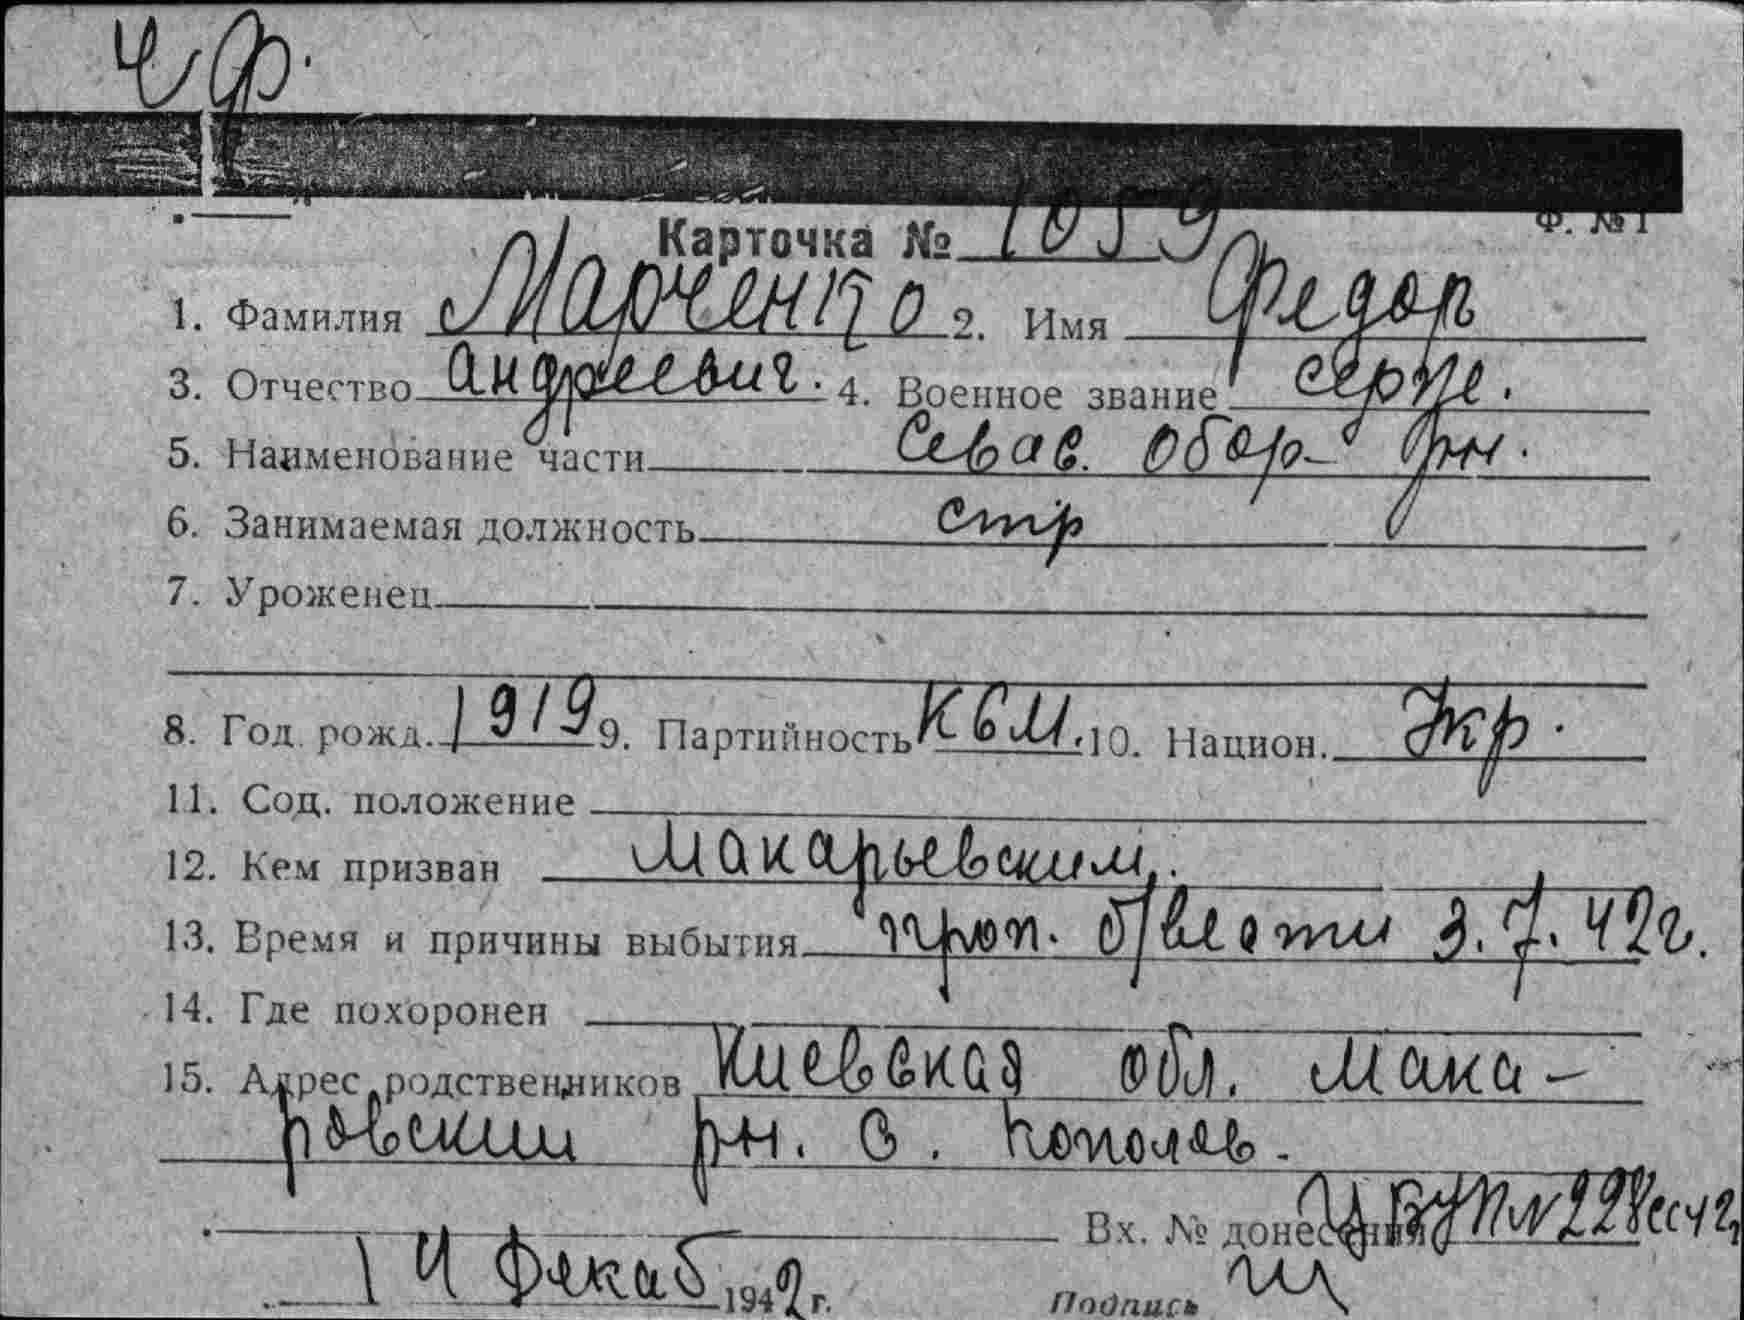 ЧФ.
Карточка № 1059
Ф. № 1
1. Фамилия Марченко 2. Имя Федор
3. Отчество Андреевич. 4. Военное звание серж.
5. Наименование части Севас. обор. рн.
6. Занимаемая должность стр
7. Уроженец
8. Год рожд. 1919 9. Партийность КСМ. 10. Национ. Укр.
11. Соц. положение
12. Кем призван Макарьевским.
13. Время и причины выбытия проп. б/вести 3.7.42г.
14. Где похоронен
15. Адрес родственников Киевская обл. Мака-
ровский рн. с. Кополов.
Вх. № донесения
14 декаб 1942 г. Подпись